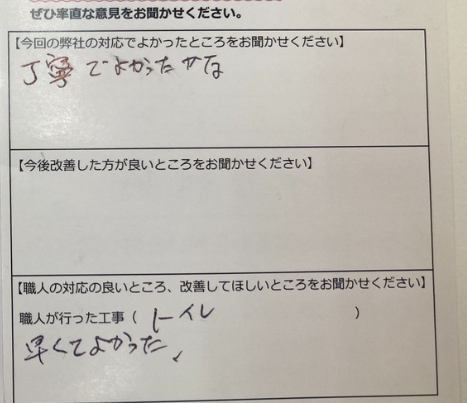 ぜひ率直な意見をお聞かせください。
【今回の弊社の対応でよかったところをお聞かせください】
丁寧でよかったかな
【今後改善した方が良いところをお聞かせください】
【職人の対応の良いところ、改善してほしいところをお聞かせください】
職人が行った工事（ トイレ ）
早くてよかった、